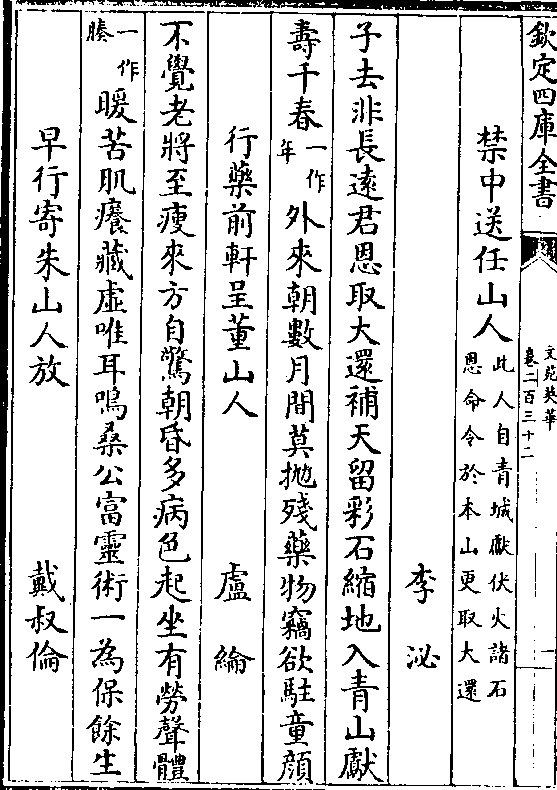 欽定四庫全書
文苑英華
卷二百三十二
禁中送任山人
此人自青城獻伏火諸石
恩命令於本山更取大還
李泌
子去非長遠君恩取大還補天留彩石縮地入青山獻
壽千春一作年外來朝數月間莫抛殘藥物竊欲駐童顔
行藥前軒呈董山人
盧綸
不覺老將至瘦來方自驚朝昏多病色起坐有勞聲體
一作腠暖苦肌癢藏虛唯耳鳴桑公富靈術一為保餘生
早行寄朱山人放
戴叔倫